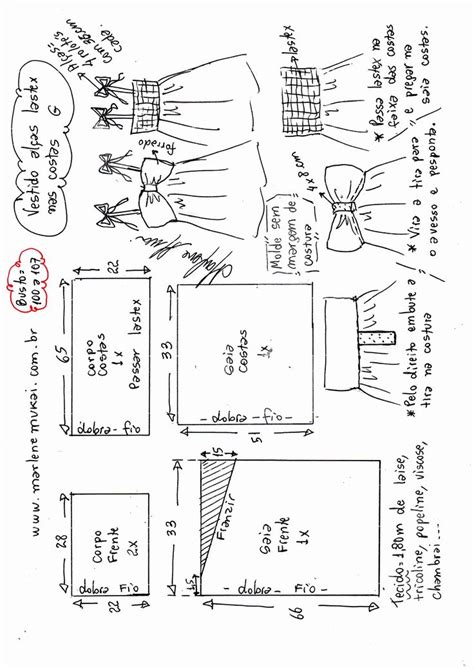 Vestido alças lastex
nas costas G
Alças=
4 rolotês
com 35cm
cada.
forrado
lastex
* Passa lastex na
faixa das costas
e pregar na
saia costas.
www.marlenemukai.com.br
Busto=
100 a 107
Molde sem
margem de
costura
4 x 8 cm
* Vira a tira para
o avesso e pesponta.
* Pelo direito embute a
tira na costura
22
65
Corpo
Costas
1x
Passar lastex
dobra - fio
33
Saia
Costas
1x
dobra - fio
51
28
Corpo
Frente
2x
dobra Fio
22
33
15
Franzir
15
Saia
Frente
1x
dobra - Fio
66
Tecido=1,80m de laise,
tricoline, popeline, viscose,
chambrai...